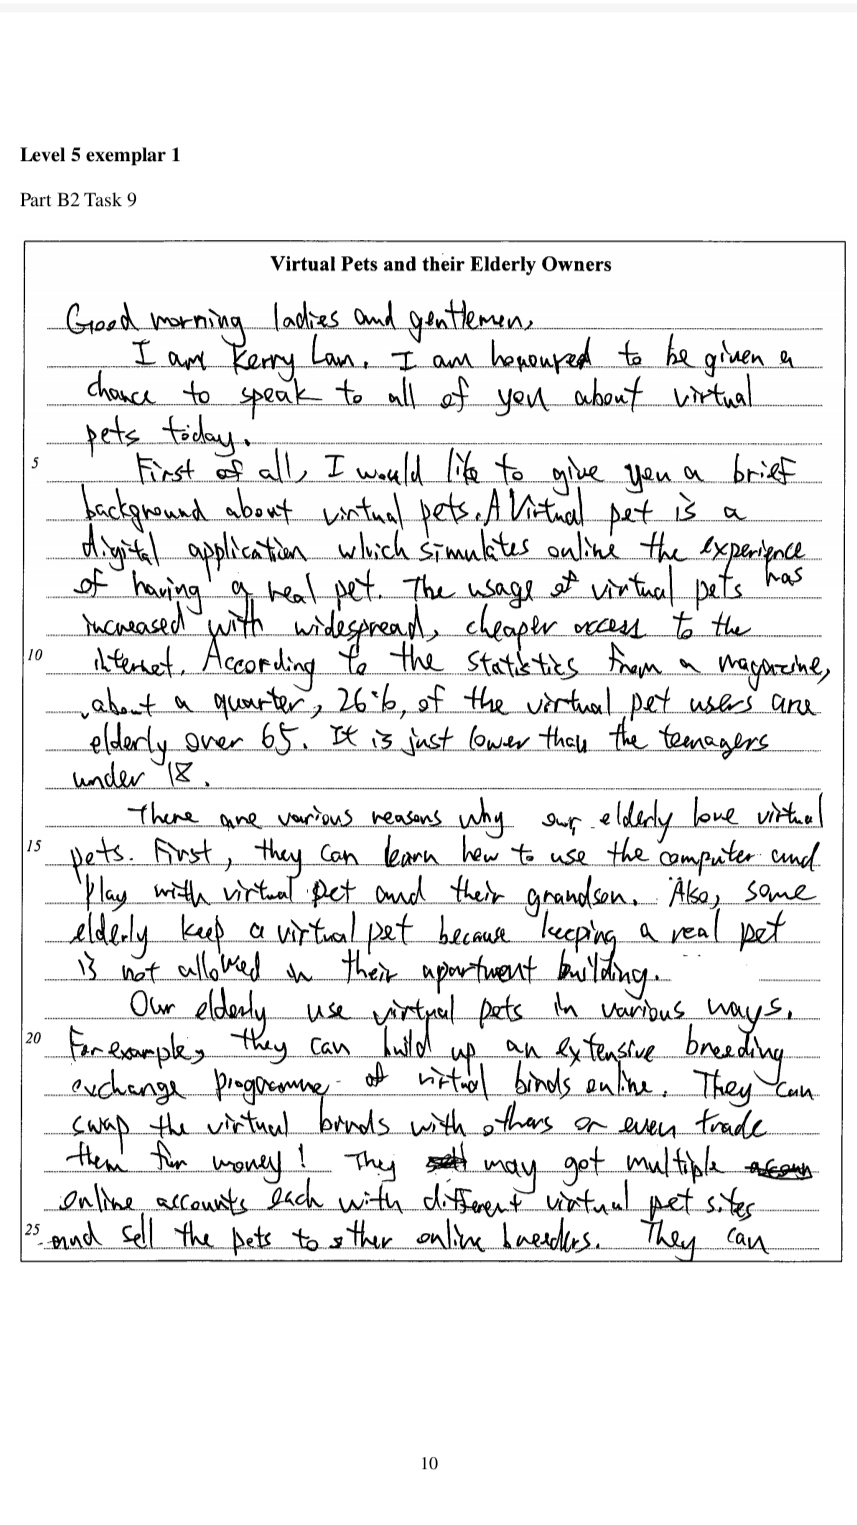 Level 5 exemplar 1
Part B2 Task 9
Virtual Pets and their Elderly Owners
Good morning ladies and gentlemen,
I am Kerry Lam. I am honoured to be given a
chance to speak to all of you about virtual
pets today.
5 First of all, I would like to give you a brief
background about virtual pets. A Virtual pet is a
digital application which simulates online the experience
of having a real pet. The usage of virtual pets has
increased with widespread, cheaper access to the
10 internet. According to the statistics from a magazine,
about a quarter, 26%, of the virtual pet users are
elderly over 65. It is just lower than the teenagers
under 18.
There are various reasons why our elderly love virtual
15 pets. First, they can learn how to use the computer and
play with virtual pet and their grandson. Also, some
elderly keep a virtual pet because keeping a real pet
is not allowed in their apartment building.
Our elderly use virtual pets in various ways.
20 For example, they can build up an extensive breeding
exchange programme of virtual birds online. They can
swap the virtual birds with others or even trade
them for money! They may got multiple
online accounts each with different virtual pet sites
25 and sell the pets to other online breeders. They can
10